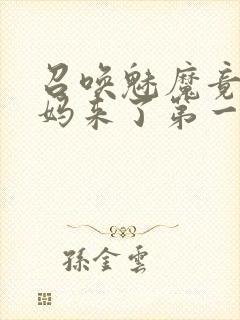 召唤魅魔竟
妈来了第一
孫金雲